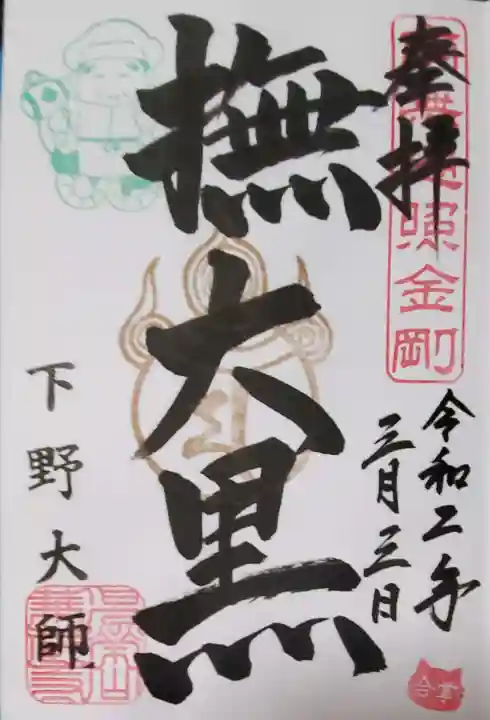 奉拝
照金剛
令和二年
三月三日
撫大黒
下野大師
合掌